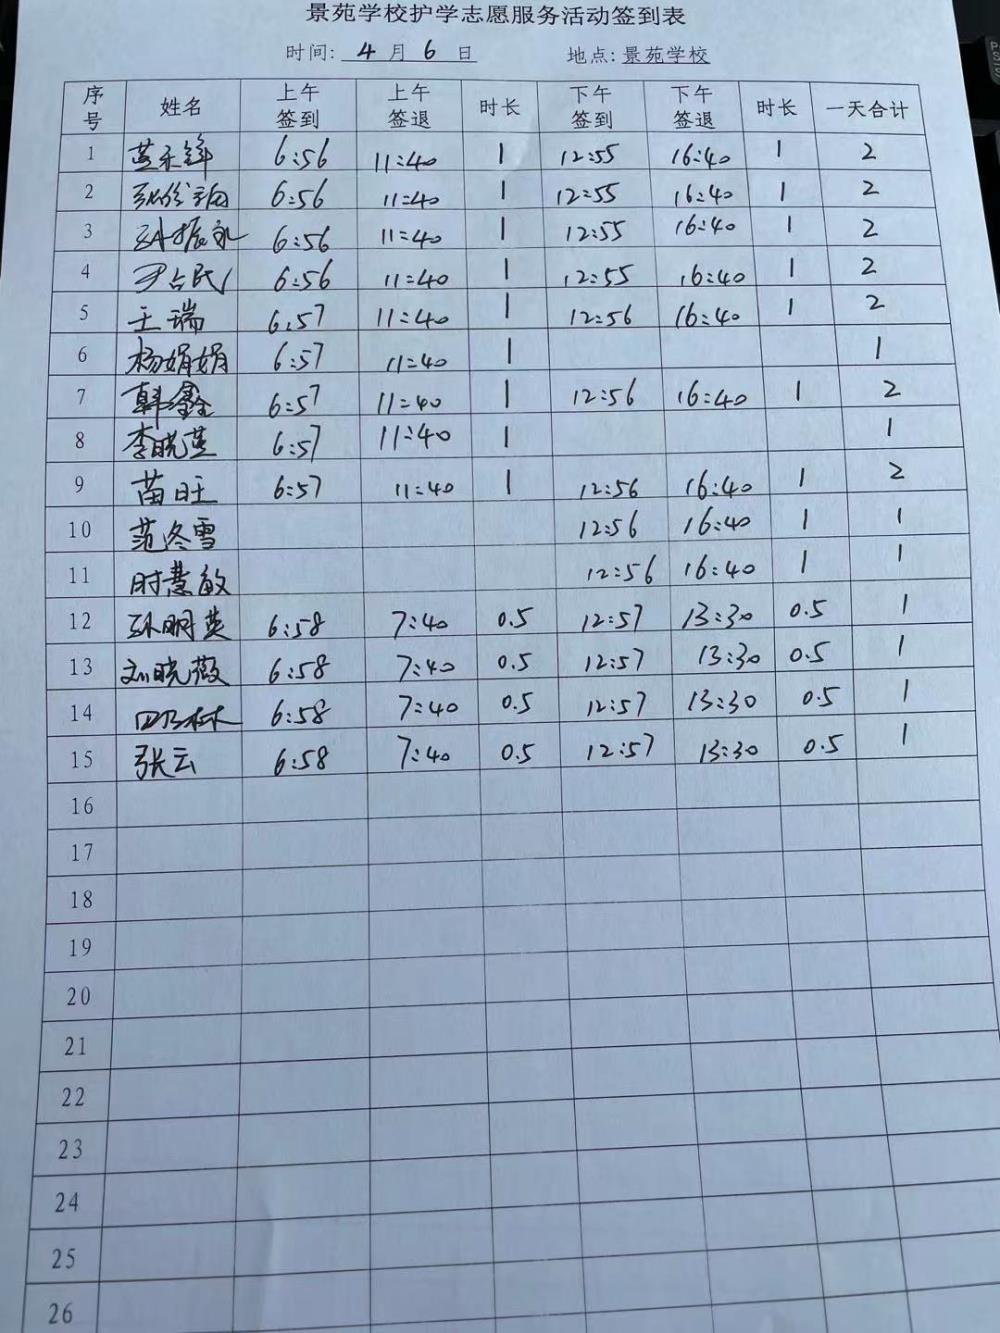 景苑学校护学志愿服务活动签到表
时间: 4 月 6 日 地点: 景苑学校
序号 姓名 上午签到 上午签退 时长 下午签到 下午签退 时长 一天合计
1 6:56 11:40 1 12:55 16:40 1 2
2 6:56 11:40 1 12:55 16:40 1 2
3 6:56 11:40 1 12:55 16:40 1 2
4 尹占民 6:56 11:40 1 12:55 16:40 1 2
5 王瑞 6:57 11:40 1 12:56 16:40 1 2
6 杨娟娟 6:57 11:40 1 1
7 韩鑫 6:57 11:40 1 12:56 16:40 1 2
8 李晓莲 6:57 11:40 1 1
9 苗旺 6:57 11:40 1 12:56 16:40 1 2
10 范冬雪 12:56 16:40 1 1
11 时慧敏 12:56 16:40 1 1
12 孙明英 6:58 7:40 0.5 12:57 13:30 0.5 1
13 刘晓薇 6:58 7:40 0.5 12:57 13:30 0.5 1
14 田乃林 6:58 7:40 0.5 12:57 13:30 0.5 1
15 张云 6:58 7:40 0.5 12:57 13:30 0.5 1
16
17
18
19
20
21
22
23
24
25
26